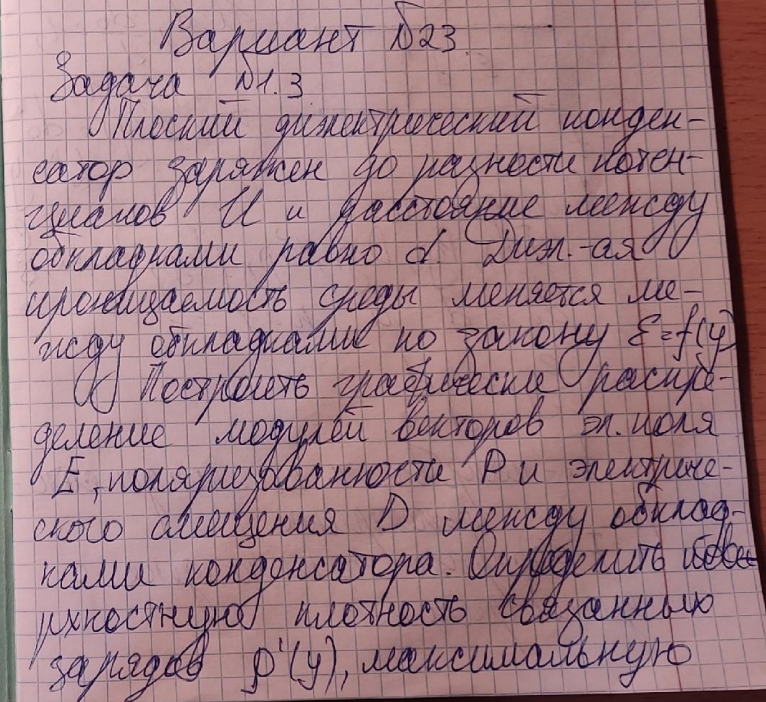 Вариант №23
Задача №1.3
Плоский диэлектрический конден-
сатор заряжен до разности потен-
циалов U и расстояние между
обкладками равно d. Диэл.-ая
проницаемость среды меняется ме-
жду обкладками по закону ε=f(y)
Построить графически распре-
деление модулей векторов эл. поля
E, поляризованности P и электриче-
ского смещения D между обклад-
ками конденсатора. Определить
рхностную плотность связанных
зарядов ρ'(y), максимальную